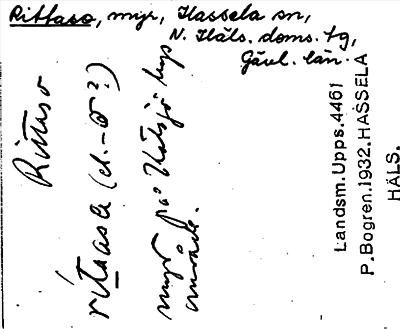 Rittaso, myr, Hassela sn,
N. Häls. doms. tg,
Gävl. län.
Rittaso
rítaasa (el. -σ?)
myr på Hålsjö bys
område.
Landsm.Upps.4461
P.Bogren.1932.HASSELA
HÄLS.